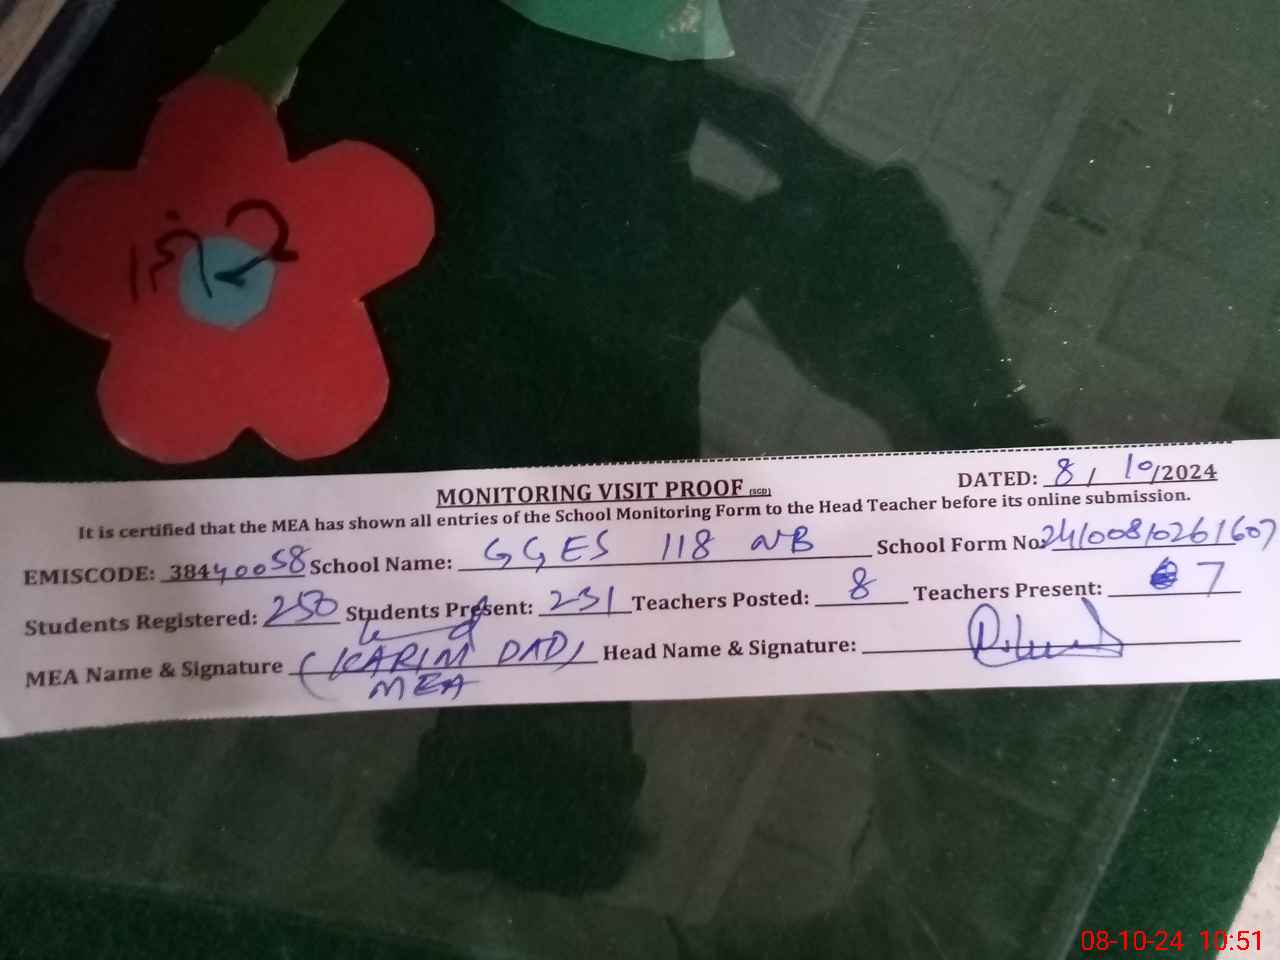 MONITORING VISIT PROOF (SGD)
DATED: 8/10/2024
It is certified that the MEA has shown all entries of the School Monitoring Form to the Head Teacher before its online submission.
EMISCODE: 38440058 School Name: GGES 118 NB School Form No: 2410081026 1607
Students Registered: 250 Students Present: 231 Teachers Posted: 8 Teachers Present: 7
MEA Name & Signature (KARIM DAD) Head Name & Signature:
MEA
08-10-24 10:51